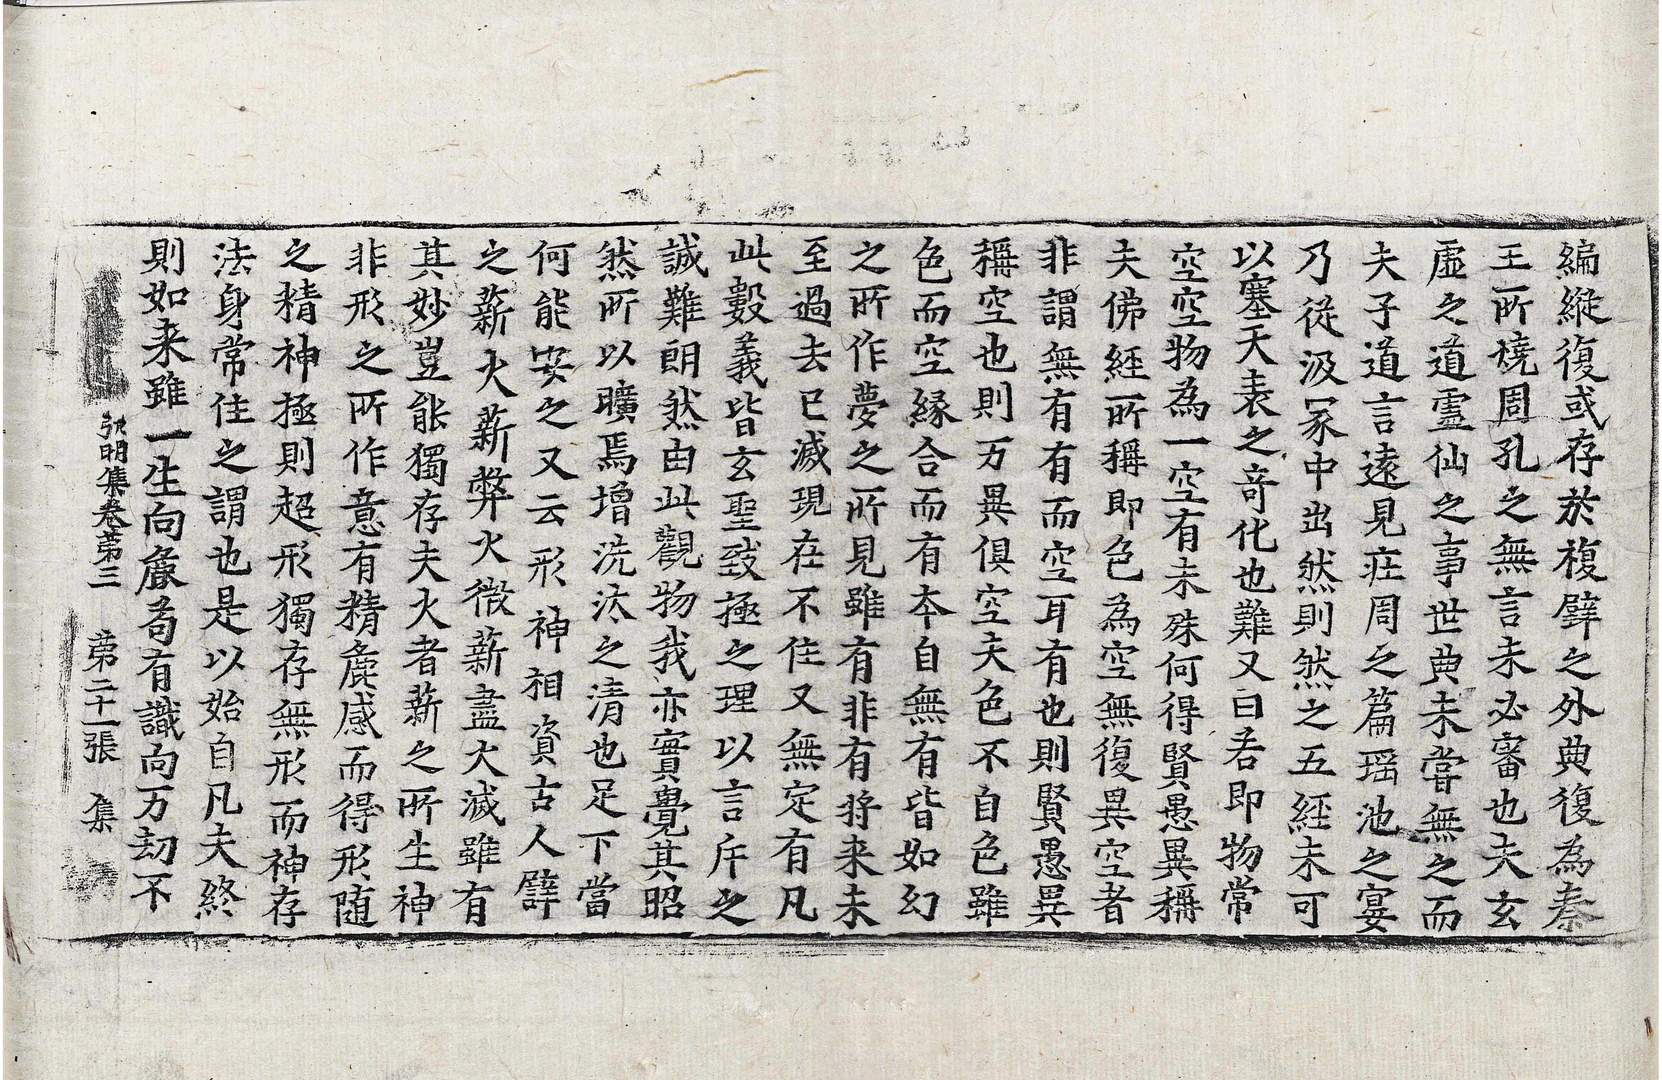 編縱復或存於複壁之外典復為秦
王所燒周孔之無言未必審也夫玄
虛之道靈仙之事世典未嘗無之而
夫子道言遠見莊周之篇瑶池之宴
乃從汲冢中出然則然之五經未可
以塞天表之竒化也難又曰若即物常
空空物為一空有未殊何得賢愚異稱
夫佛經所稱即色為空無復異空者
非謂無有有而空耳有也則賢愚異
稱空也則万異俱空夫色不自色雖
色而空緣合而有夲自無有皆如幻
之所作夢之所見雖有非有将来未
至過去已滅現在不住又無定有凡
此數義皆玄聖致極之理以言斥之
誠難朗然由此觀物我亦實覺其昭
然所以曠焉增洗汰之清也足下當
何能安之又云形神相資古人譬
之薪火薪弊火微薪盡火滅雖有
其妙豈能獨存夫火者薪之所生神
非形之所作意有精麁感而得形随
之精神極則超形獨存無形而神存
法身常住之謂也是以始自凡夫終
則如来雖一生向麁苟有識向万劫不
弘明集卷第三 第二十一張 集